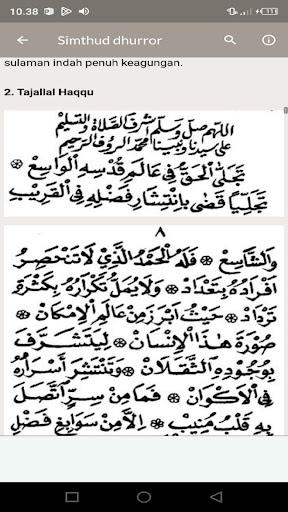 10.38
Simthud dhurror
sulaman indah penuh keagungan.
2. Tajallal Haqqu
اَللّٰهُمَّ صَلِّ وَسَلِّمْ أَشْرَفَ الصَّلَاةِ وَالتَّسْلِيْمِ
عَلَى سَيِّدِنَا وَنَبِيِّنَا مُحَمَّدٍ الرَّءُوْفِ الرَّحِيْمِ
تَجَلَّى الْحَقُّ فِيْ عَالَمِ قُدْسِهِ الْوَاسِعْ ۞
تَجَلِّيًا قَضَى بِانْتِشَارِ فَضْلِهِ فِي الْقَرِيْبِ
٨
وَالشَّاسِعْ ۞ فَلَهُ الْحَمْدُ الَّذِيْ لَا تَنْحَصِرُ
أَفْرَادُهُ بِتَعْدَادْ ۞ وَلَا يُمَلُّ تَكْرَارُهُ بِكَثْرَةِ
تَرْدَادْ ۞ حَيْثُ أَبْرَزَ مِنْ عَالَمِ الْإِمْكَانْ ۞
صُوْرَةَ هٰذَا الْإِنْسَانْ ۞ لِيَتَشَرَّفَ
بِوُجُوْدِهِ الثَّقَلَانْ ۞ وَتَنْتَشِرَ أَسْرَارُهُ
فِي الْأَكْوَانْ ۞ فَمَا مِنْ سِرٍّ اتَّصَلَ
بِهِ قَلْبُ مُنِيْبْ ۞ إِلَّا مِنْ سَوَابِغِ فَضْلِ